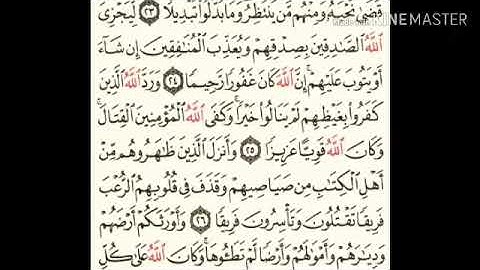 قَضَىٰ نَحْبَهُۥ وَمِنْهُم مَّن يَنتَظِرُ وَمَا بَدَّلُوا۟ تَبْدِيلًا ٢٣ لِّيَجْزِىَ
ٱللَّهُ ٱلصَّـٰدِقِينَ بِصِدْقِهِمْ وَيُعَذِّبَ ٱلْمُنَـٰفِقِينَ إِن شَآءَ
أَوْ يَتُوبَ عَلَيْهِمْ إِنَّ ٱللَّهَ كَانَ غَفُورًا رَّحِيمًا ٢٤ وَرَدَّ ٱللَّهُ ٱلَّذِينَ
كَفَرُوا۟ بِغَيْظِهِمْ لَمْ يَنَالُوا۟ خَيْرًا وَكَفَى ٱللَّهُ ٱلْمُؤْمِنِينَ ٱلْقِتَالَ
وَكَانَ ٱللَّهُ قَوِيًّا عَزِيزًا ٢٥ وَأَنزَلَ ٱلَّذِينَ ظَـٰهَرُوهُم مِّنْ
أَهْلِ ٱلْكِتَـٰبِ مِن صَيَاصِيهِمْ وَقَذَفَ فِى قُلُوبِهِمُ ٱلرُّعْبَ
فَرِيقًا تَقْتُلُونَ وَتَأْسِرُونَ فَرِيقًا ٢٦ وَأَوْرَثَكُمْ أَرْضَهُمْ
وَدِيَـٰرَهُمْ وَأَمْوَٰلَهُمْ وَأَرْضًا لَّمْ تَطَـُٔوهَا وَكَانَ ٱللَّهُ عَلَىٰ كُلِّ
KINEMASTER